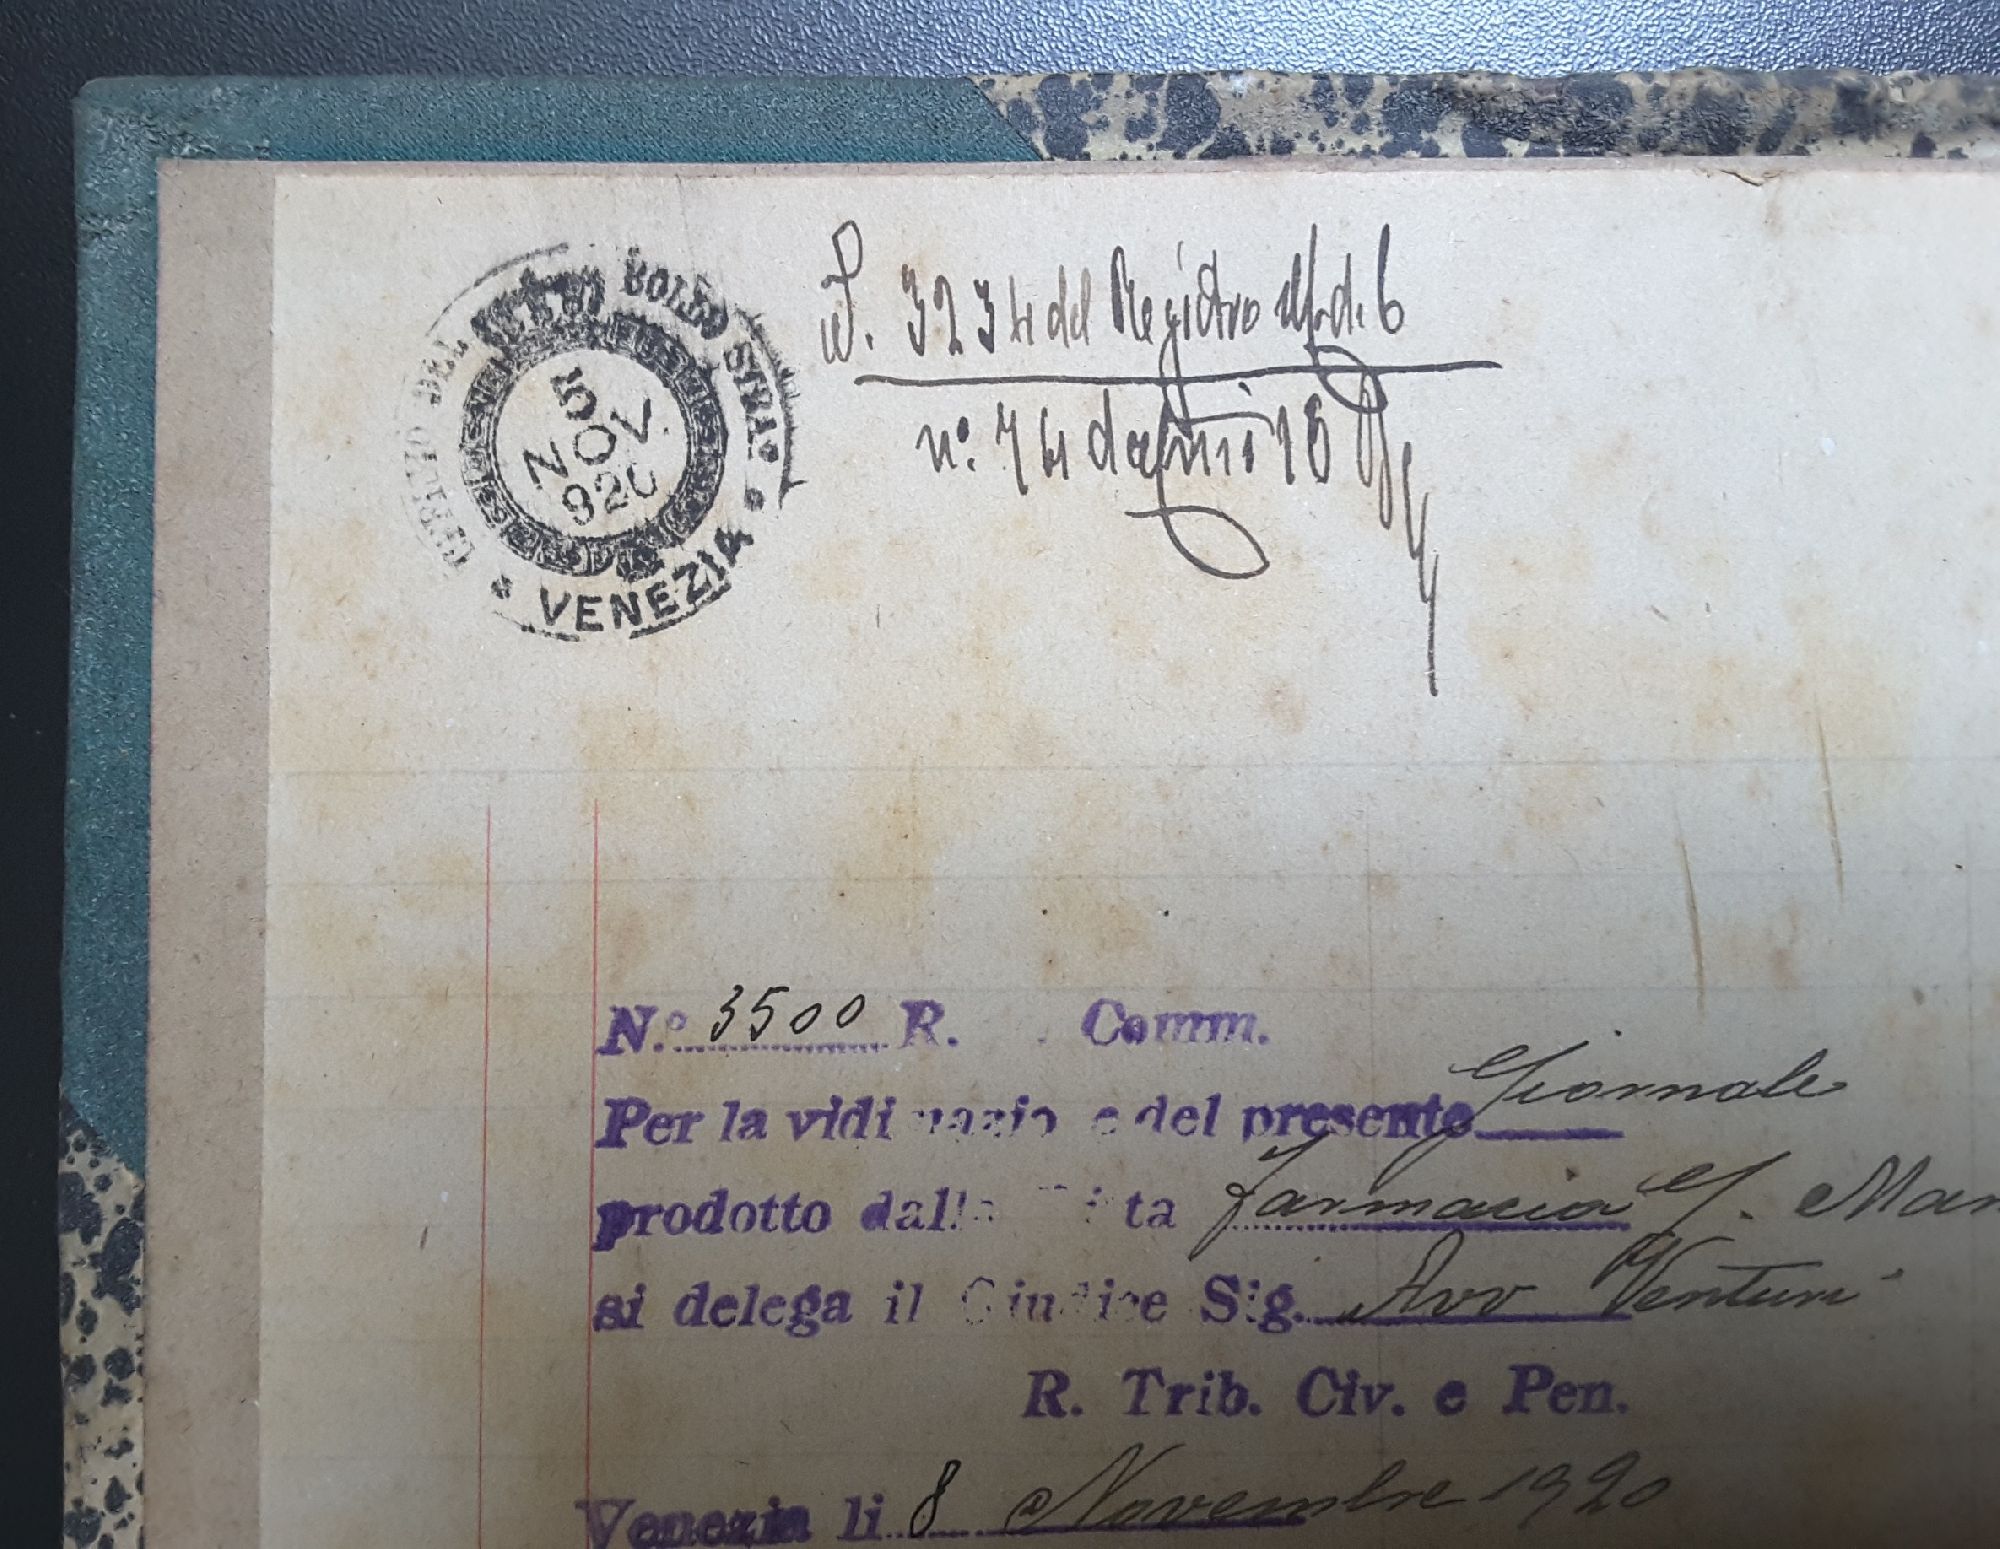 UFFICIO DEL BOLLO STRAº
5
NOV.
920
VENEZIA
P. 3234 del Registro Mod. 6
nº. 74 da 18
N.º 3500 R. . Comm.
Per la vidi mazio e del presente Giornale
prodotto dalla Ditta Farmacia G. Man
si delega il Giudice Sig. Avv Venturi
R. Trib. Civ. e Pen.
Venezia li 8 Novembre 1920